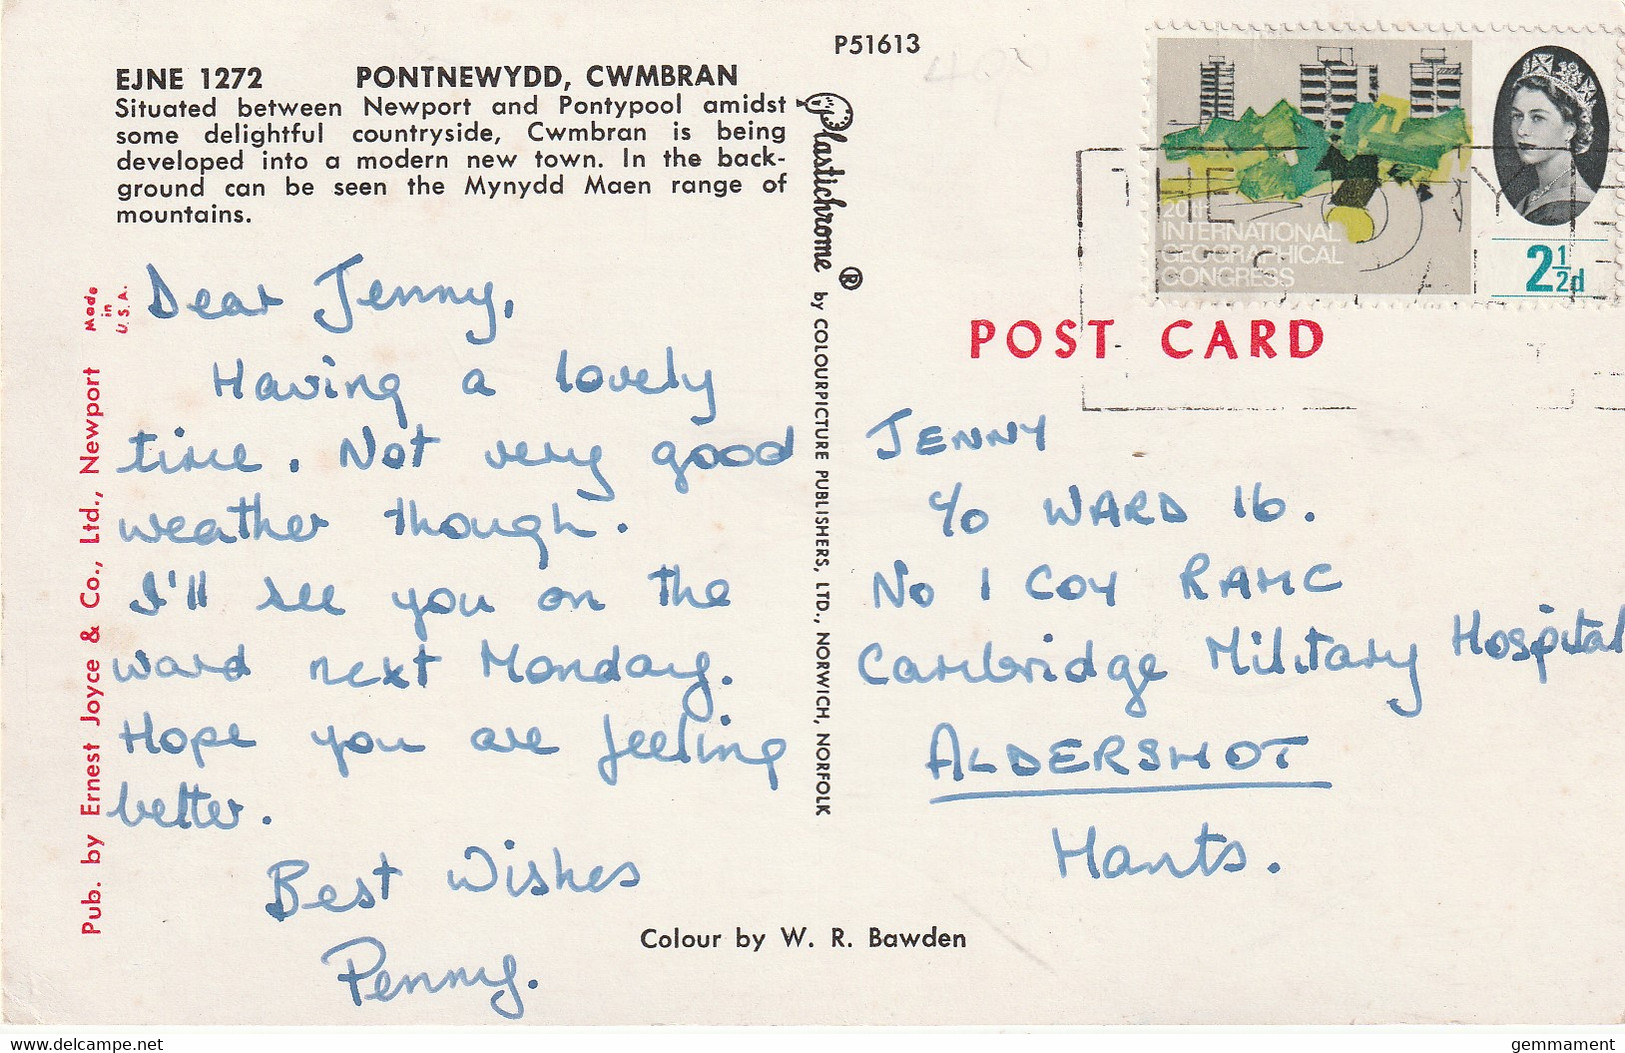 P51613
EJNE 1272 PONTNEWYDD, CWMBRAN
Situated between Newport and Pontypool amidst
some delightful countryside, Cwmbran is being
developed into a modern new town. In the back-
ground can be seen the Mynydd Maen range of
mountains.
Dear Jenny,
Having a lovely
time. Not very good
weather though.
I'll see you on the
ward next Monday.
Hope you are feeling
better.
Best Wishes
Penny.
Pub. by Ernest Joyce & Co., Ltd., Newport
Made
in
U.S.A.
Plastichrome ® by COLOURPICTURE PUBLISHERS, LTD., NORWICH, NORFOLK
20th
INTERNATIONAL
GEOGRAPHICAL
CONGRESS
2½d
THE
POST CARD
JENNY
c/o WARD 16.
No 1 COY RAMC
Cambridge Military Hospital
ALDERSHOT
Hants.
Colour by W. R. Bawden
https://www.delcampe.net
gemmament